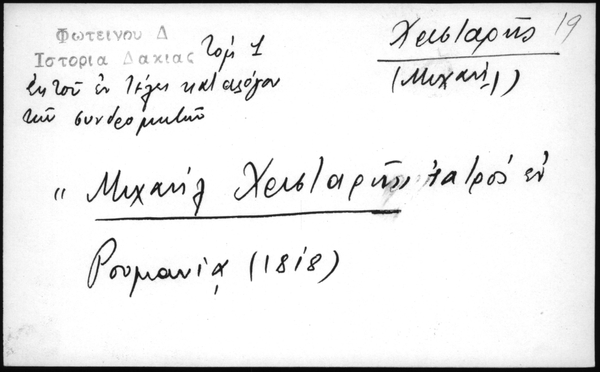 Φωτεινου Δ
Ιστορια Δακιας τομ 1
εκ του εν τέλει καταλόγου
των συνδρομητών
Χρισταρής 19
(Μιχαήλ)
" Μιχαήλ Χρισταρής ιατρός εν
Ρουμανίᾳ (1818)